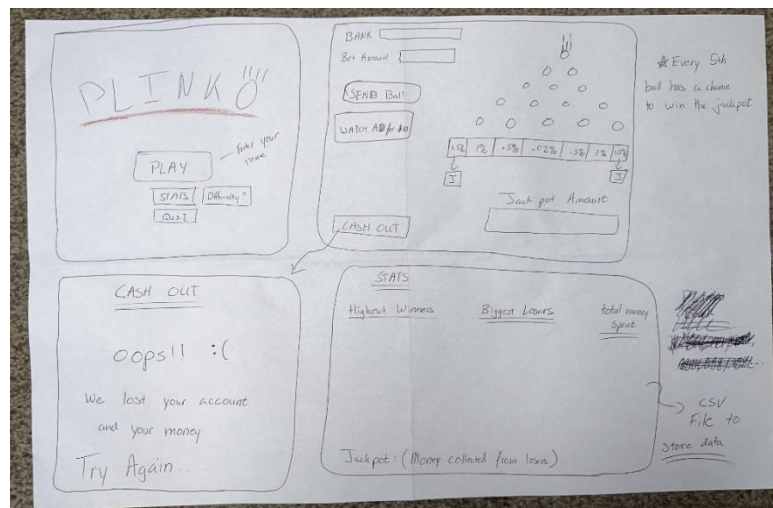 PLINKO
PLAY
Enter your name
STATS
Difficulty?
Quit
BANK
Bet Amount
SEND Ball
WATCH AD for $10
1.5% 1% .5% .02% .5% 1% 1.5%
J
J
Jackpot Amount
CASH OUT
* Every 5th
ball has a chance
to win the jackpot
CASH OUT
Oops!! :(
We lost your account
and your money
Try Again....
STATS
Highest Winners
Biggest Losers
total money
spent
Jackpot: (Money collected from losers)
CSV
File to
store data